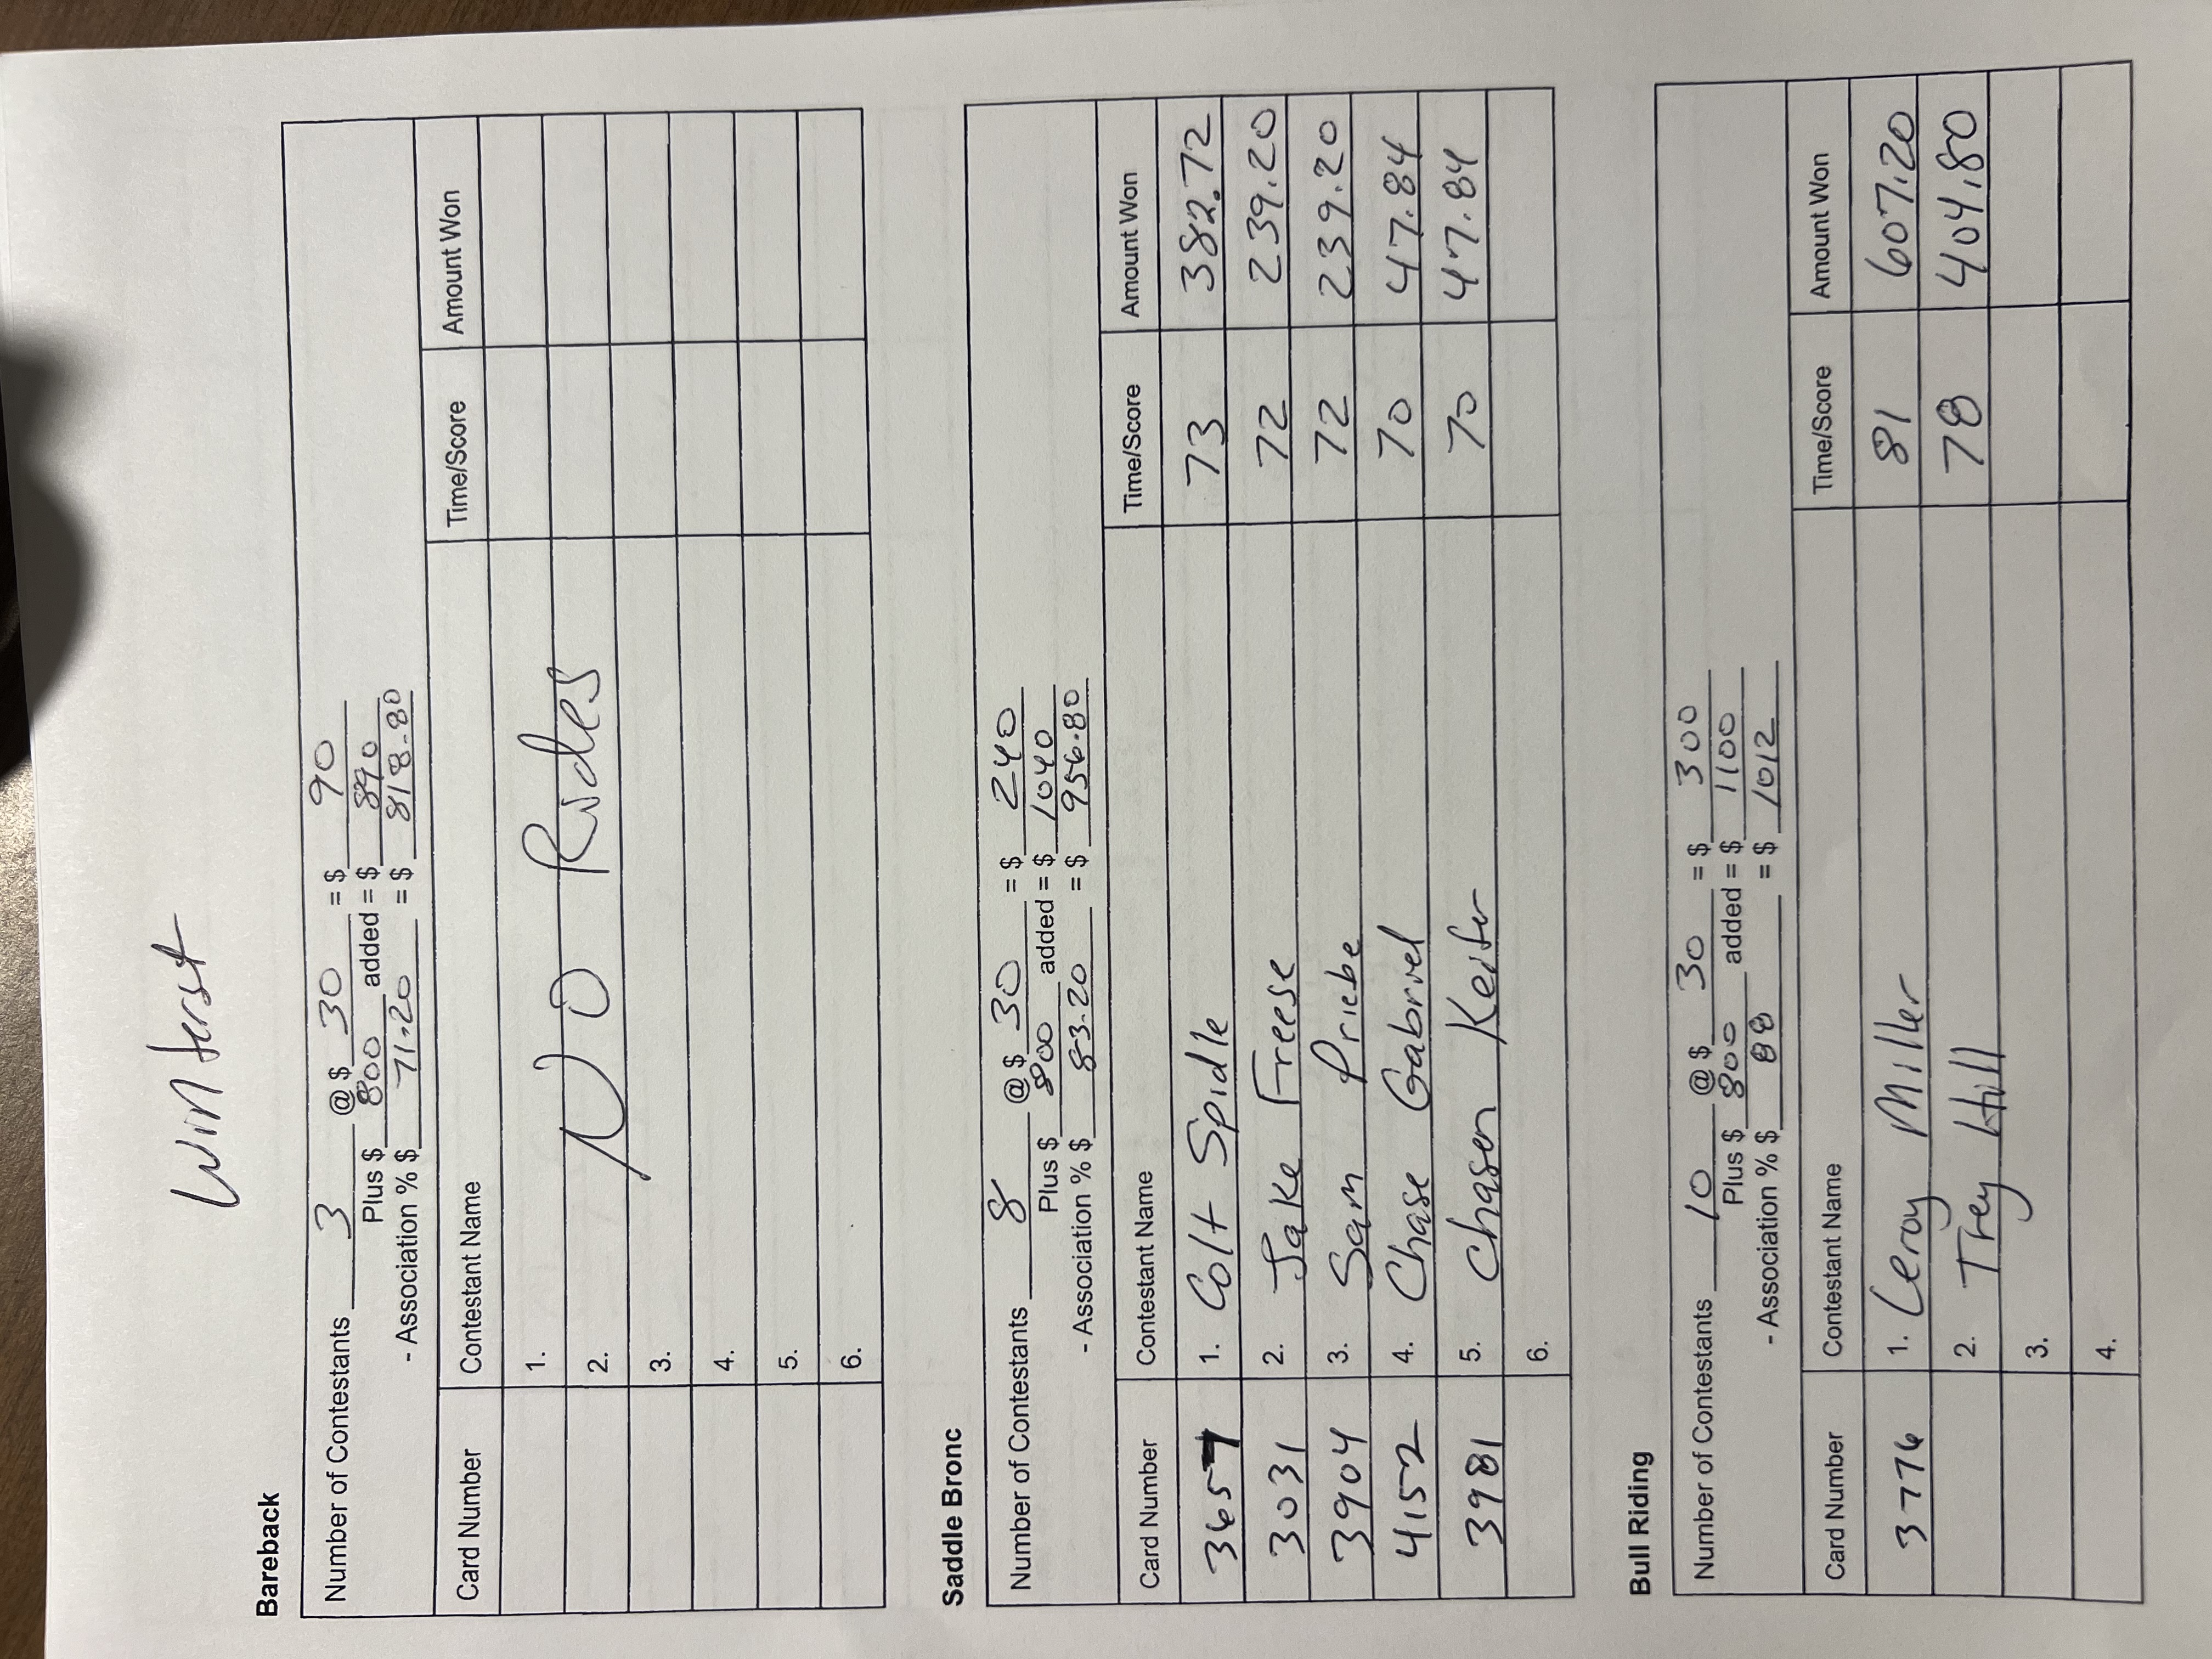 Winterst
Bareback
Number of Contestants 3 @ $ 30 = $ 90
Plus $ 800 added = $ 890
- Association % $ 71.20 = $ 818.80
Card Number Contestant Name Time/Score Amount Won
1.
2. NO Rides
3.
4.
5.
6.
Saddle Bronc
Number of Contestants 8 @ $ 30 = $ 240
Plus $ 800 added = $ 1040
- Association % $ 83.20 = $ 956.80
Card Number Contestant Name Time/Score Amount Won
3657 1. Colt Spidle 73 382.72
3031 2. Jake Freese 72 239.20
3904 3. Sam Priebe 72 239.20
4152 4. Chase Gabriel 70 47.84
3981 5. Chasen Keiter 70 47.84
6.
Bull Riding
Number of Contestants 10 @ $ 30 = $ 300
Plus $ 800 added = $ 1100
- Association % $ 88 = $ 1012
Card Number Contestant Name Time/Score Amount Won
3776 1. Leroy Miller 81 607.20
2. Trey Hill 78 404.80
3.
4.